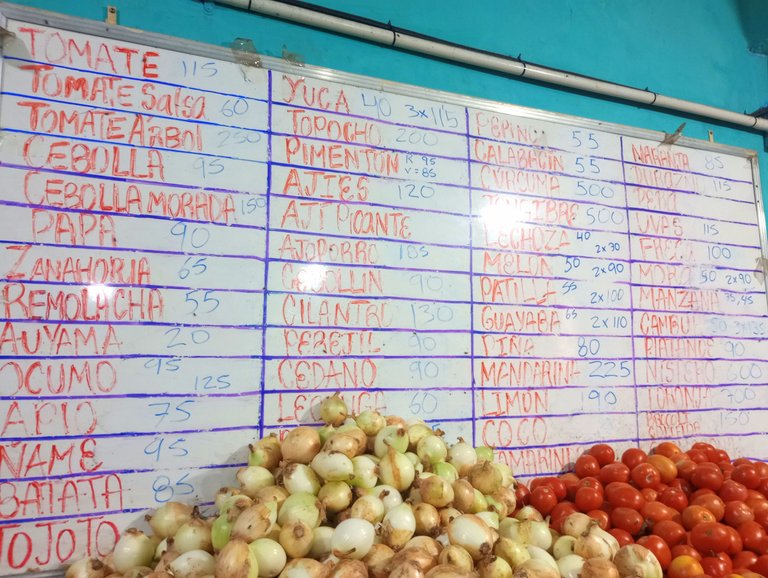 TOMATE 115
TOMATE Salsa 60
TOMATE ARbol 250
CEBOLLA 95
CEBOLLA MORADA 150
PAPA 90
ZANAHORIA 65
REMOLACHA 55
AUYAMA 20
OCUMO 95 125
APIO 75
ÑAME 95
BATATA 85
JOJOTO
YUCA 40 3x115
TOPOCHO 200
PIMENTON R 95 V=85
AJIES 120
AJI PICANTE
AJOPORRO 185
CEBOLLIN 90
CILANTRO 130
PEREJIL 90
CEDANO 90
LECHUGA 60
PEPINO 55
CALABACIN 55
CURCUMA 500
JENGIBRE 500
LECHOZA 40 2x30
MELON 50 2x90
PATILLA 55 2x100
GUAYABA 65 2x110
PIÑA 80
MANDARINA 225
LIMON 190
COCO
TAMARINDO
NARANJA 85
DURAZNO 115
PERA
UVAS 115
FRESA 100
MORO 50 2x90
MANZANA 75,45
CAMBUR 50 3x135
PLATANOS 90
NISPERO 600
TORONJA 700